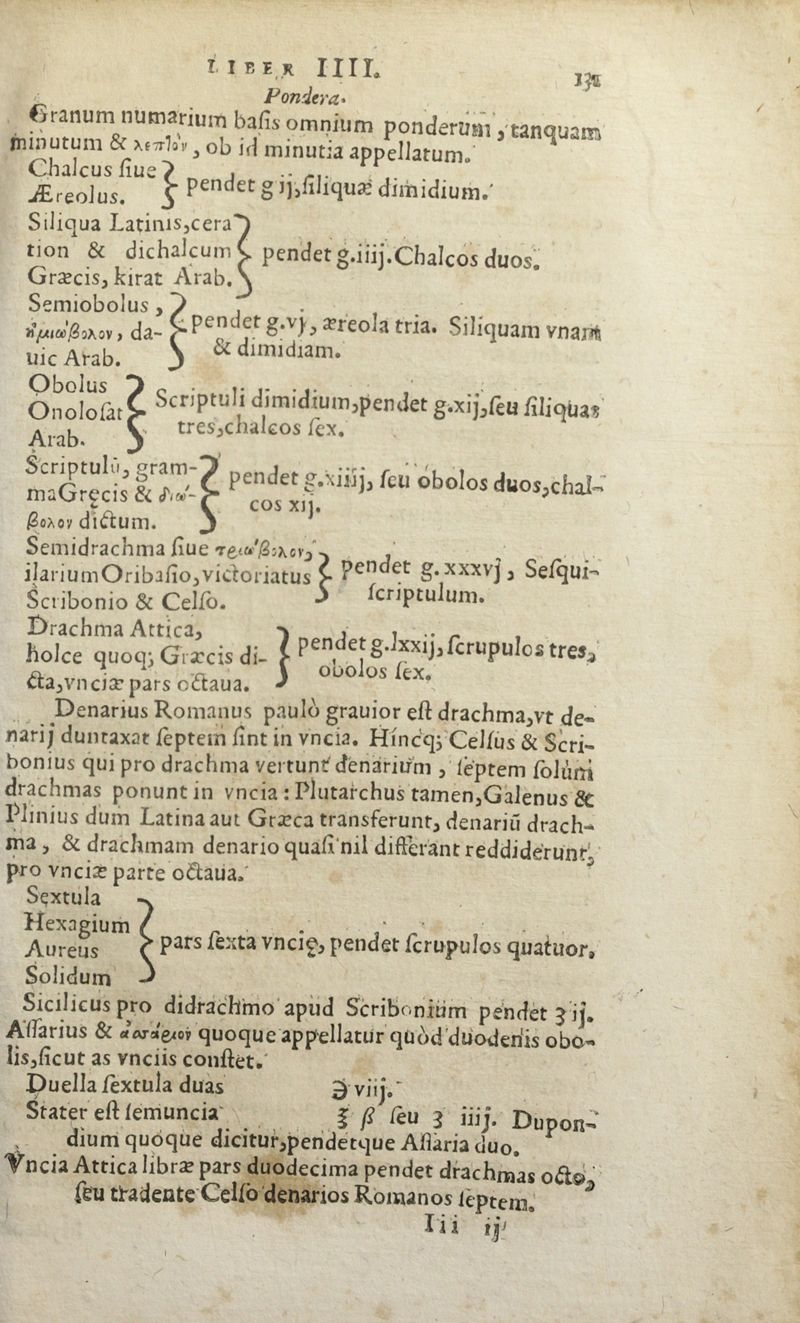 LIBER IIII.
Pondera.
Granum numarium basis omnium ponderum, tanquam
minutum & λεπτὸν, ob id minutia appellatum.
Chalcus siue
Æreolus. } pendet g ij, siliquæ dimidium.
Siliqua Latinis, cera
tion & dichalcum } pendet g.iiij. Chalcos duos.
Græcis, kirat Arab.
Semiobolus,
ἡμιώβολον, da- } pendet g.vj, æreola tria. Siliquam vnam
uic Arab. & dimidiam.
Obolus
Onolosat } Scriptuli dimidium, pendet g.xij, seu siliquas
Arab. tres, chalcos sex.
Scriptulū, gram-
ma Gręcis & διώ- } pendet g.xiiij, seu obolos duos, chal-
βολον dictum. cos xij.
Semidrachma siue τριώβολον,
ilarium Oribasio, victoriatus } pendet g. xxxvj, Sesqui-
Scribonio & Celso. scriptulum.
Drachma Attica,
holce quoq; Græcis di- } pendet g.lxxij, scrupulos tres,
cta, vnciæ pars octaua. obolos sex.
Denarius Romanus paulò grauior est drachma, vt de-
narij duntaxat septem sint in vncia. Hincq; Celsus & Scri-
bonius qui pro drachma vertunt denarium, septem solùm
drachmas ponunt in vncia: Plutarchus tamen, Galenus &
Plinius dum Latina aut Græca transferunt, denariū drach-
ma, & drachmam denario quasi nil differant reddiderunt,
pro vnciæ parte octaua.
Sextula
Hexagium
Aureus } pars sexta vncię, pendet scrupulos quatuor,
Solidum
Sicilicus pro didrachmo apud Scribonium pendet ʒ ij.
Assarius & ἀσσάριον quoque appellatur quòd duodenis obo-
lis, sicut as vnciis constet.
Duella sextula duas ℈ viij.
Stater est semuncia ℥ ß seu ʒ iiij. Dupon-
dium quoque dicitur, pendetque Assaria duo.
Vncia Attica libræ pars duodecima pendet drachmas octo,
seu tradente Celso denarios Romanos septem.
Iii ij